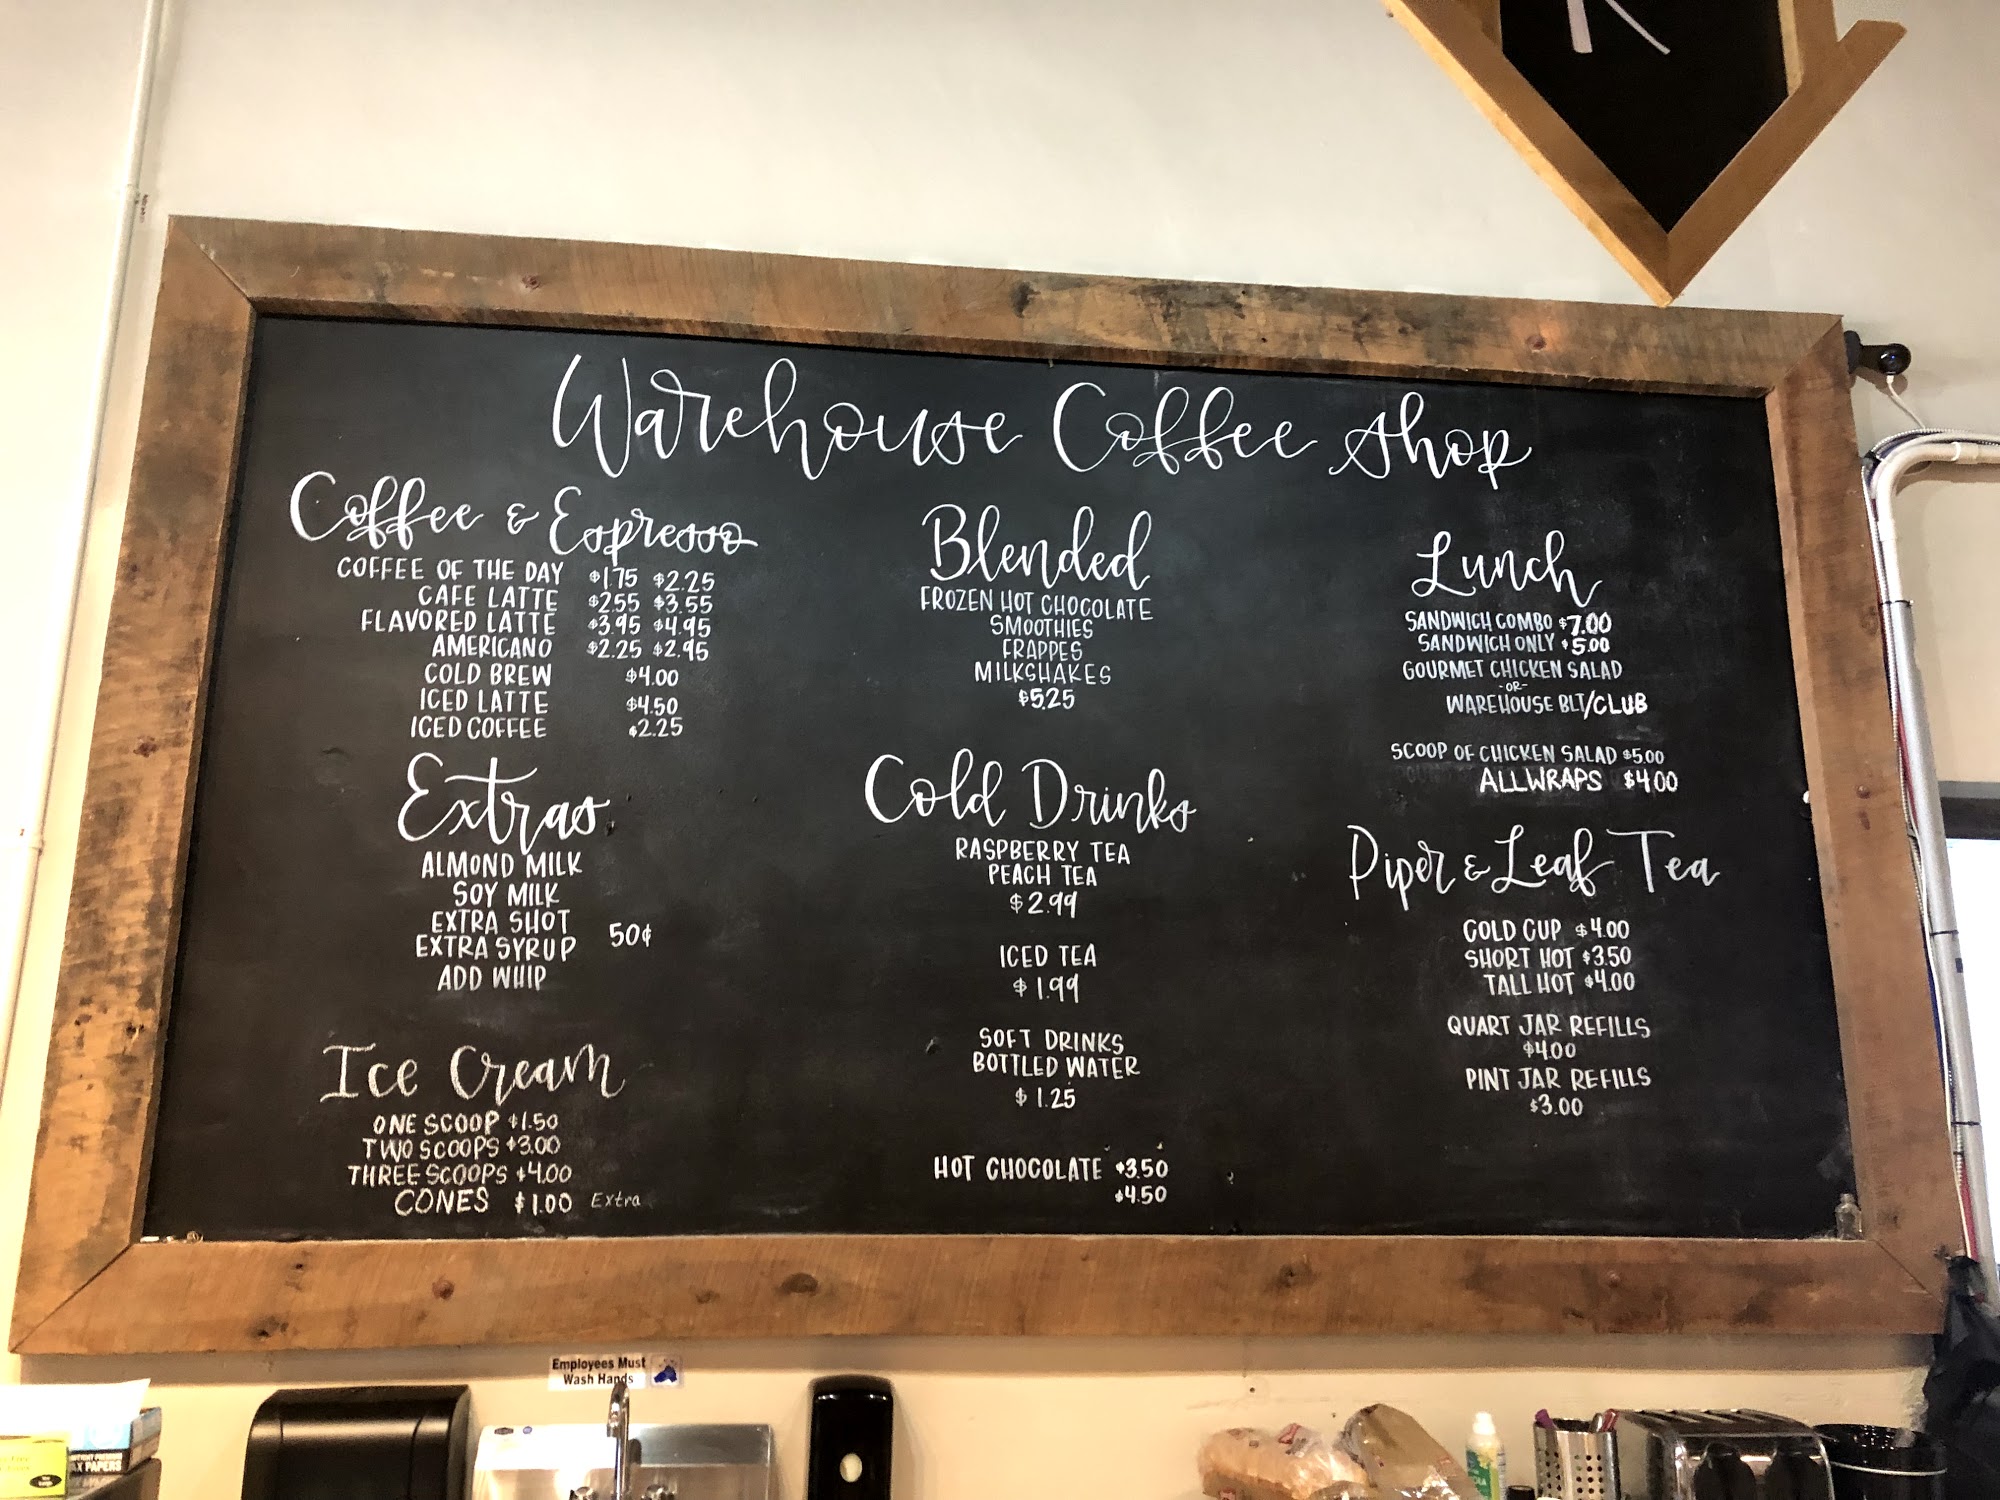 Warehouse Coffee Shop
Coffee & Espresso
COFFEE OF THE DAY $1.75 $2.25
CAFE LATTE $2.55 $3.55
FLAVORED LATTE $3.95 $4.95
AMERICANO $2.25 $2.95
COLD BREW $4.00
ICED LATTE $4.50
ICED COFFEE $2.25
Extras
ALMOND MILK
SOY MILK
EXTRA SHOT
EXTRA SYRUP 50¢
ADD WHIP
Ice Cream
ONE SCOOP $1.50
TWO SCOOPS $3.00
THREE SCOOPS $4.00
CONES $1.00 Extra
Blended
FROZEN HOT CHOCOLATE
SMOOTHIES
FRAPPES
MILKSHAKES
$5.25
Cold Drinks
RASPBERRY TEA
PEACH TEA
$2.99
ICED TEA
$1.99
SOFT DRINKS
BOTTLED WATER
$1.25
HOT CHOCOLATE $3.50
$4.50
Lunch
SANDWICH COMBO $7.00
SANDWICH ONLY $5.00
GOURMET CHICKEN SALAD
-OR-
WAREHOUSE BLT/CLUB
SCOOP OF CHICKEN SALAD $5.00
ALL WRAPS $4.00
Piper & Leaf Tea
COLD CUP $4.00
SHORT HOT $3.50
TALL HOT $4.00
QUART JAR REFILLS
$4.00
PINT JAR REFILLS
$3.00
Employees Must
Wash Hands